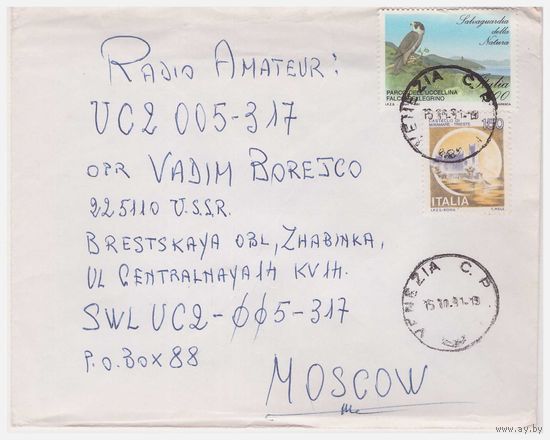 RADIO AMATEUR:
UC2 005-317
OPR VADIM BOREJCO
225110 U.S.S.R.
BRESTSKAYA OBL, ZHABINKA,
UL CENTRALNAYA 14 KV 14.
SWL UC2-ØØ5-317
P.O. BOX 88
MOSCOW
Salvaguardia
della
Natura
Italia
PARCO DELL'UCCELLINA
FALCO PELLEGRINO
VENEZIA C.P
CASTELLO DI
MIRAMARE - TRIESTE
ITALIA
I.P.Z.S. - ROMA
VENEZIA C.P
www.ay.by